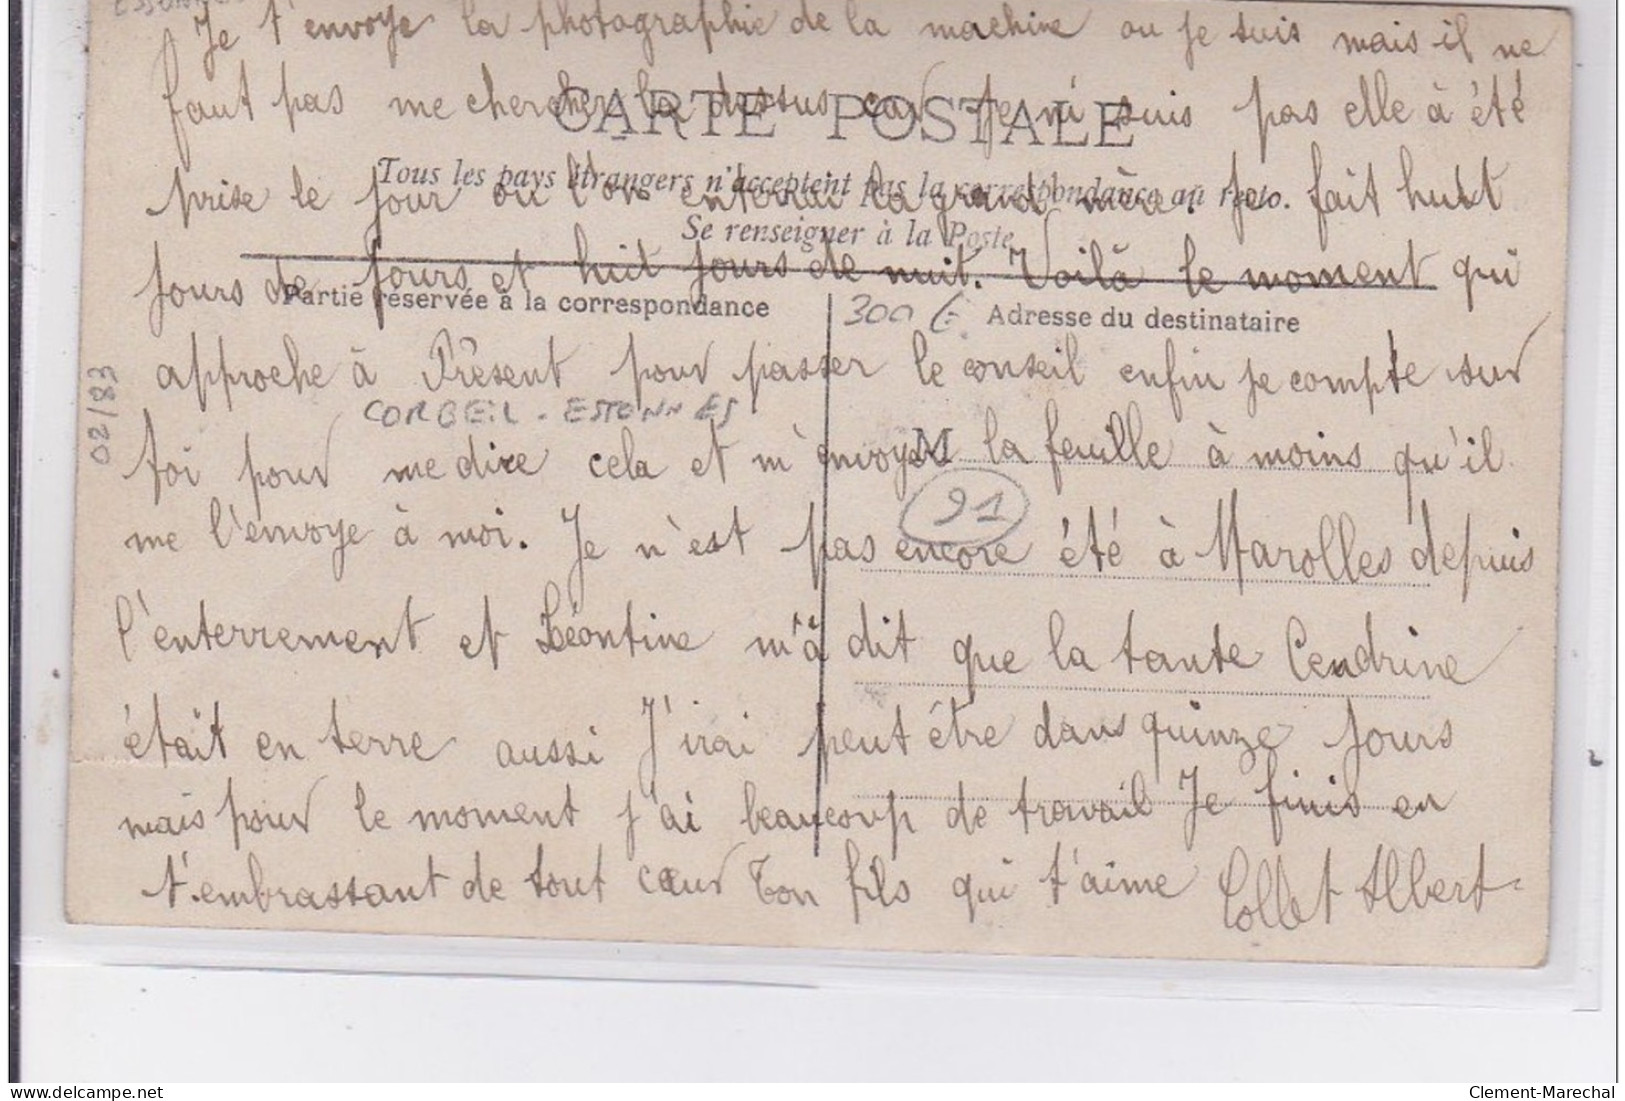 Je t'envoye la photographie de la machine ou je suis mais il ne
faut pas me chercher la dessus car je ni suis pas elle à été
CARTE POSTALE
Tous les pays étrangers n'acceptent pas la correspondance au recto.
prise le jour ou l'on enterrai la grand mère. Je fait huit
Se renseigner à la Poste
jours de jours et huit jours de nuit. Voilà le moment qui
Partie réservée à la correspondance
300 €
Adresse du destinataire
approche à Présent pour passer le conseil enfin je compte sur
CORBEIL - ESSONNES
02/83
toi pour me dire cela et m'envoyer la feuille à moins qu'il
M
91
me l'envoye à moi. Je n'est pas encore été à Marolles depuis
l'enterrement et Léontine m'à dit que la tante Cendrine
était en terre aussi J'irai peut être dans quinze jours
mais pour le moment j'ai beaucoup de travail Je finis en
t'embrassant de tout cœur Ton fils qui t'aime Collet Albert
delcampe.net
Clement-Marechal